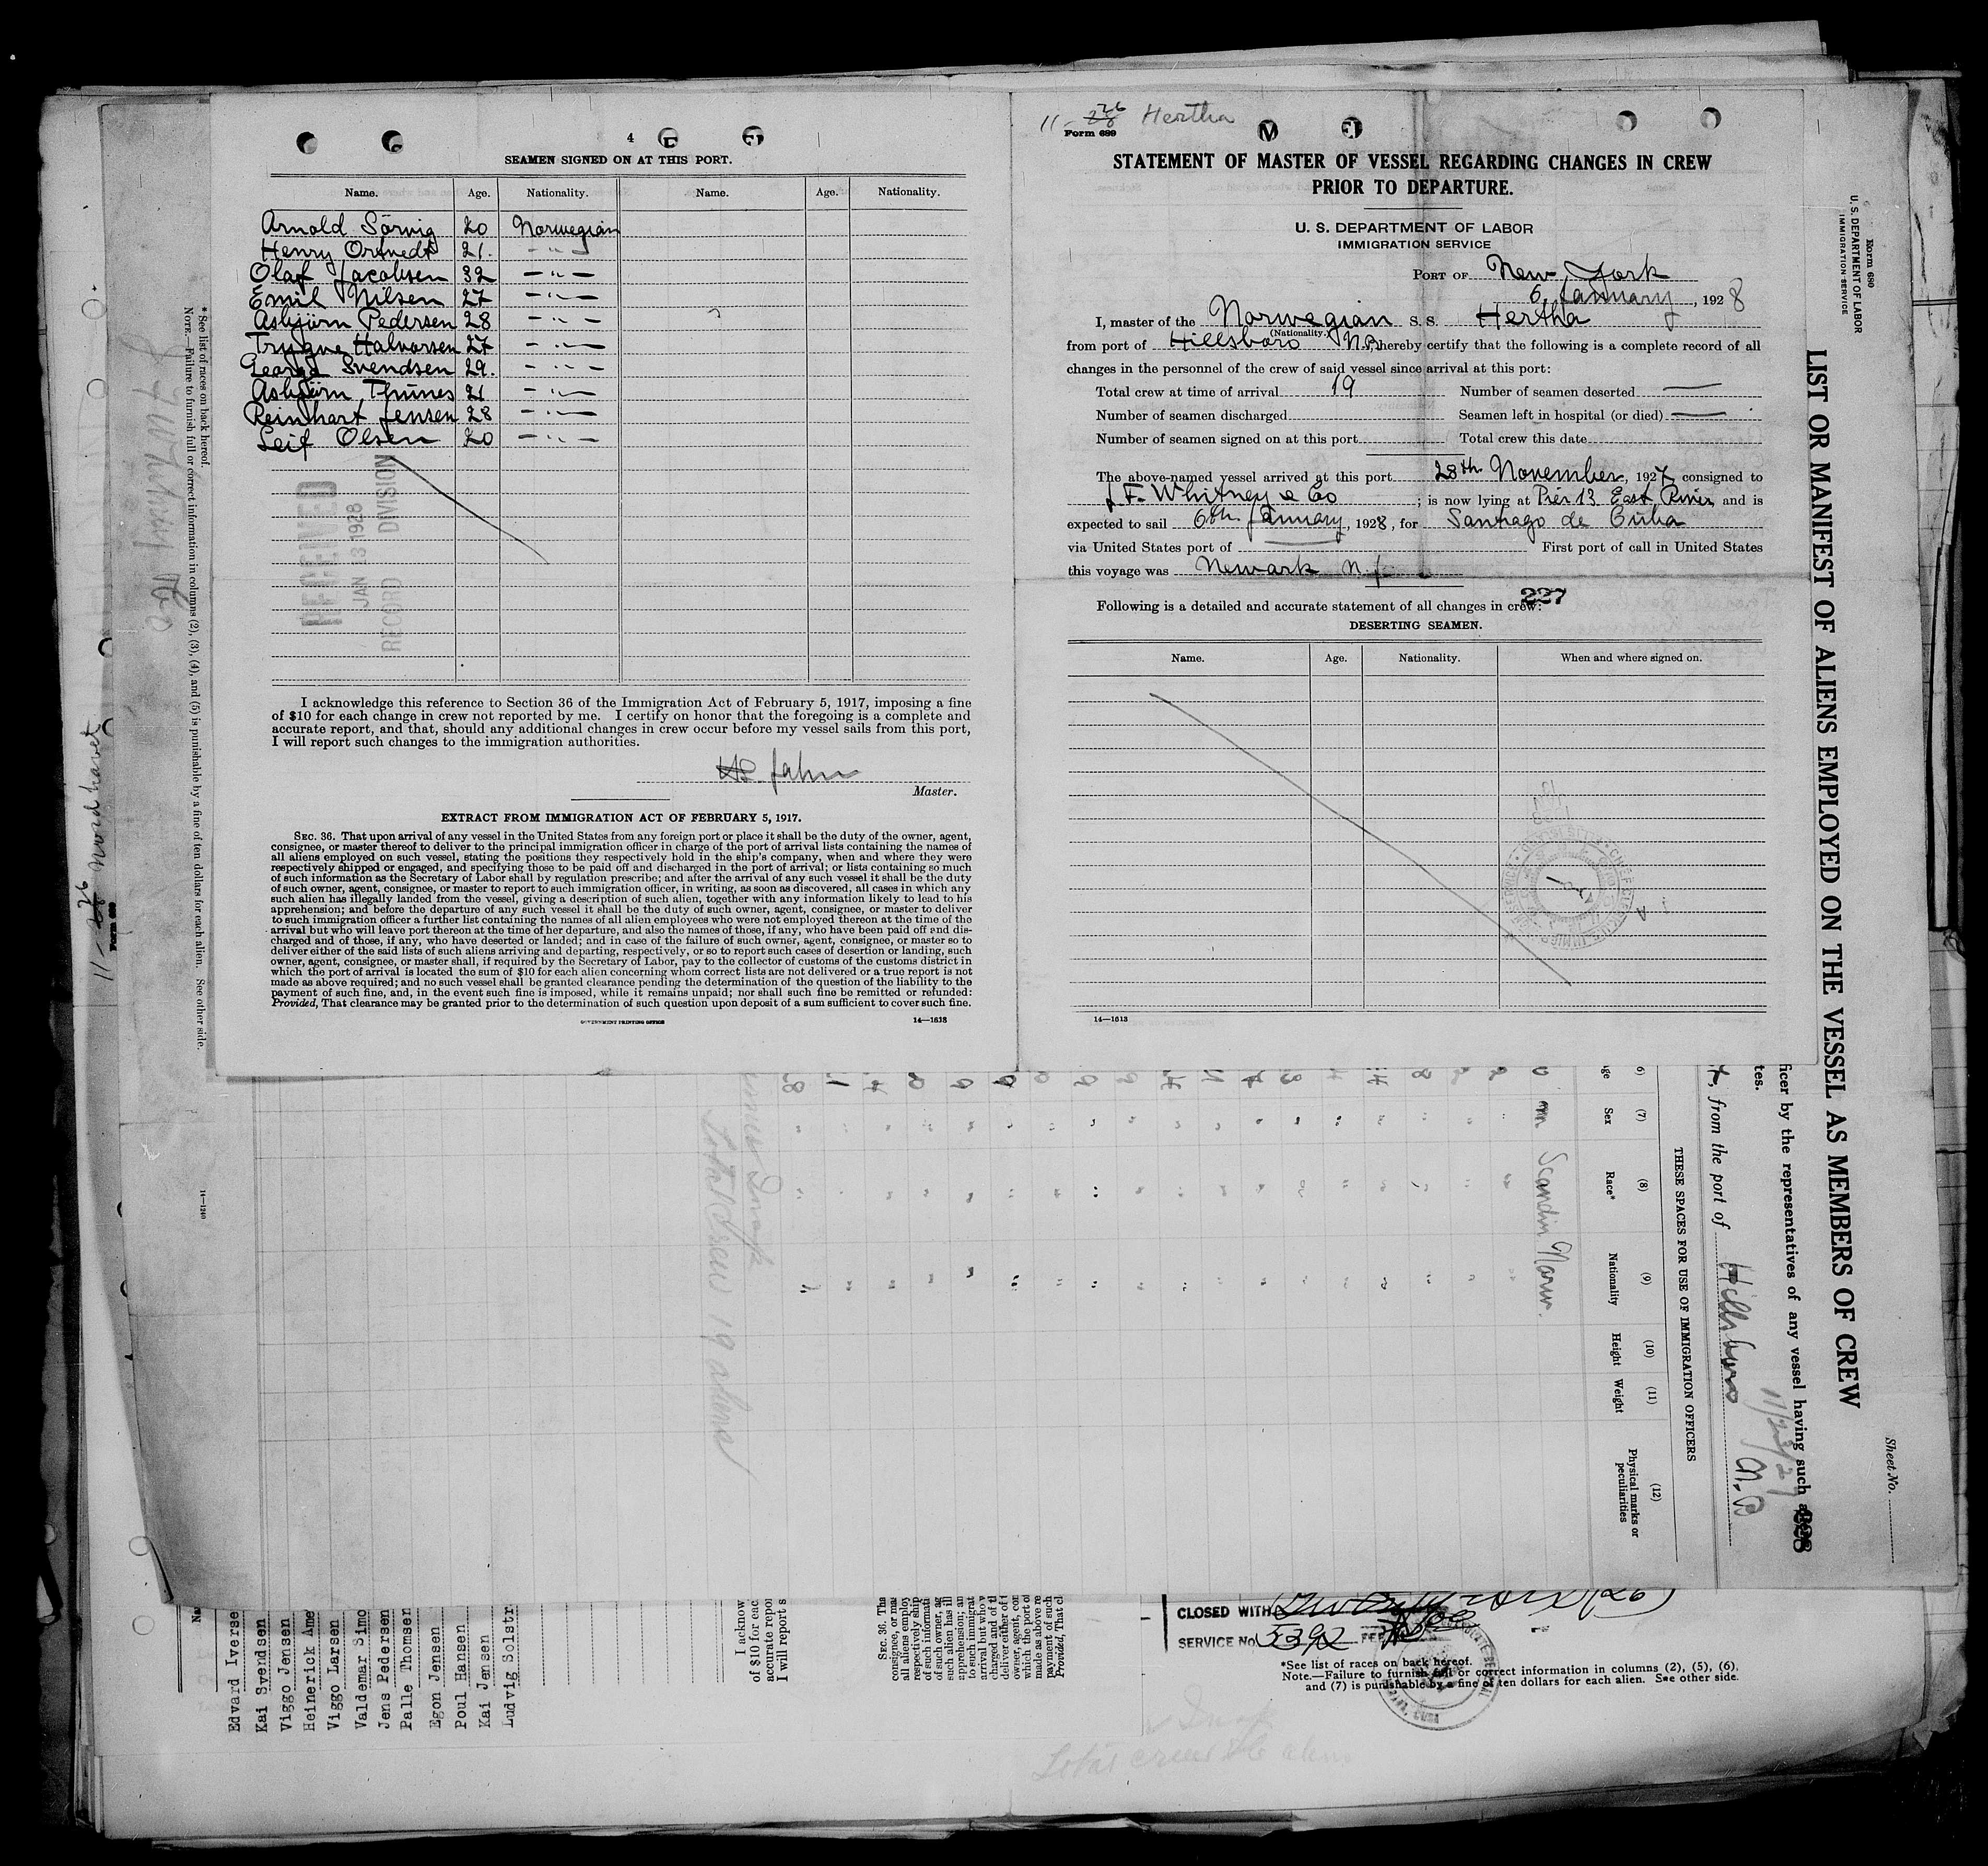 4
SEAMEN SIGNED ON AT THIS PORT.
Name. Age. Nationality. Name. Age. Nationality.
Arnold Sörvig 20 Norwegian
Henry Ortvedt 21. - " -
Olaf Jacobsen 32 - " -
Emil Nilsen 27 - " -
Asbjörn Pedersen 28 - " -
Trygve Halvorsen 27 - " -
Georg Svendsen 29. - " -
Asbjörn Thunes 21 - " -
Reinhart Jensen 28 - " -
Leif Olsen 20 - " -
RECEIVED
JAN 13 1928
RECORD DIVISION
I acknowledge this reference to Section 36 of the Immigration Act of February 5, 1917, imposing a fine
of $10 for each change in crew not reported by me. I certify on honor that the foregoing is a complete and
accurate report, and that, should any additional changes in crew occur before my vessel sails from this port,
I will report such changes to the immigration authorities.
Jahn
Master.
EXTRACT FROM IMMIGRATION ACT OF FEBRUARY 5, 1917.
SEC. 36. That upon arrival of any vessel in the United States from any foreign port or place it shall be the duty of the owner, agent,
consignee, or master thereof to deliver to the principal immigration officer in charge of the port of arrival lists containing the names of
all aliens employed on such vessel, stating the positions they respectively hold in the ship's company, when and where they were
respectively shipped or engaged, and specifying those to be paid off and discharged in the port of arrival; or lists containing so much
of such information as the Secretary of Labor shall by regulation prescribe; and after the arrival of any such vessel it shall be the duty
of such owner, agent, consignee, or master to report to such immigration officer, in writing, as soon as discovered, all cases in which any
such alien has illegally landed from the vessel, giving a description of such alien, together with any information likely to lead to his
apprehension; and before the departure of any such vessel it shall be the duty of such owner, agent, consignee, or master to deliver
to such immigration officer a further list containing the names of all alien employees who were not employed thereon at the time of the
arrival but who will leave port thereon at the time of her departure, and also the names of those, if any, who have been paid off and dis-
charged and of those, if any, who have deserted or landed; and in case of the failure of such owner, agent, consignee, or master so to
deliver either of the said lists of such aliens arriving and departing, respectively, or so to report such cases of desertion or landing, such
owner, agent, consignee, or master shall, if required by the Secretary of Labor, pay to the collector of customs of the customs district in
which the port of arrival is located the sum of $10 for each alien concerning whom correct lists are not delivered or a true report is not
made as above required; and no such vessel shall be granted clearance pending the determination of the question of the liability to the
payment of such fine, and, in the event such fine is imposed, while it remains unpaid; nor shall such fine be remitted or refunded:
Provided, That clearance may be granted prior to the determination of such question upon deposit of a sum sufficient to cover such fine.
GOVERNMENT PRINTING OFFICE 14—1613
11- 28 26 Hertha
Form 689
STATEMENT OF MASTER OF VESSEL REGARDING CHANGES IN CREW
PRIOR TO DEPARTURE.
U. S. DEPARTMENT OF LABOR
IMMIGRATION SERVICE
PORT OF New York
6. January, 1928
I, master of the Norwegian S. S. Hertha
(Nationality.)
from port of Hillsboro N.B., hereby certify that the following is a complete record of all
changes in the personnel of the crew of said vessel since arrival at this port:
Total crew at time of arrival 19 Number of seamen deserted —
Number of seamen discharged Seamen left in hospital (or died) —
Number of seamen signed on at this port Total crew this date
The above-named vessel arrived at this port 28th November, 1927 consigned to
J. F. Whitney & Co; is now lying at Pier 13 East River, and is
expected to sail 6th January, 1928, for Santiago de Cuba
via United States port of First port of call in United States
this voyage was Newark N. J.
227
Following is a detailed and accurate statement of all changes in crew:
DESERTING SEAMEN.
Name. Age. Nationality. When and where signed on.
14—1613
Form 680
U. S. DEPARTMENT OF LABOR
IMMIGRATION SERVICE
LIST OR MANIFEST OF ALIENS EMPLOYED ON THE VESSEL AS MEMBERS OF CREW
Sheet No.
ficer by the representatives of any vessel having such
tes.
11/23/27
, from the port of Hillsboro N.B
THESE SPACES FOR USE OF IMMIGRATION OFFICERS
(7) (8) (9) (10) (11) (12)
Sex Race* Nationality Height Weight Physical marks or peculiarities
m Scandin Norw.
Total Crew 19 aliens
* See list of races on back hereof.
NOTE.—Failure to furnish full or correct information in columns (2), (3), (4), and (5) is punishable by a fine of ten dollars for each alien. See other side.
14—1240
J F Whitney & Co
11- 28 26 Nordhavet
Form 689
Edvard Iverse
Kai Svendsen
Viggo Jensen
Heinerick Ame
Viggo Larsen
Valdemar Simo
Jens Pedersen
Palle Thomsen
Egon Jensen
Poul Hansen
Kai Jensen
Ludvig Solstr
I acknow
of $10 for eac
accurate repor
I will report s
SEC. 36. Tha
consignee, or mas
all aliens employ
respectively ship
of such informati
of such owner, ag
such alien has ill
apprehension; an
to such immigrat
arrival but who w
charged and of th
deliver either of t
owner, agent, con
which the port of
made as above re
payment of such
Provided, That cl
CLOSED WITH
SERVICE No. 5392
*See list of races on back hereof.
Note.—Failure to furnish full or correct information in columns (2), (5), (6),
and (7) is punishable by a fine of ten dollars for each alien. See other side.